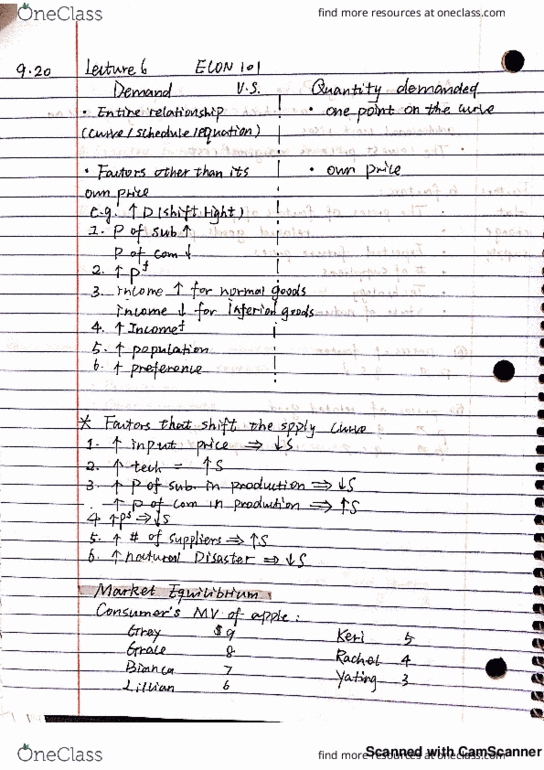 OneClass
find more resources at oneclass.com
9.20 Lecture 6 ECON 101
Demand V.S. Quantity demanded
• Entire relationship • one point on the curve
(curve/schedule/Equation)
• Factors other than its • own price
own price
e.g. ↑ D (shift right)
1. P of sub ↑
P of com ↓
2. ↑ Pᶠ
3. income ↑ for normal goods
income ↓ for Inferior goods
4. ↑ Incomeᶠ
5. ↑ population
6. ↑ preference
* Factors that shift the spply curve
1. ↑ input price ⇒ ↓S
2. ↑ tech = ↑S
3. ↑ P of sub. in production ⇒ ↓S
↑ P of com in production ⇒ ↑S
4. ↑ Pᶠ ⇒ ↓S
5. ↑ # of suppliers ⇒ ↑S
6. ↑ natural Disaster ⇒ ↓S
Market Equilibrium
Consumer's MV of apple:
Grey $9 Keri 5
Grace 8 Rachel 4
Bianca 7 Yating 3
Lillian 6
OneClass
find more resources at oneclass.com
Scanned with CamScanner